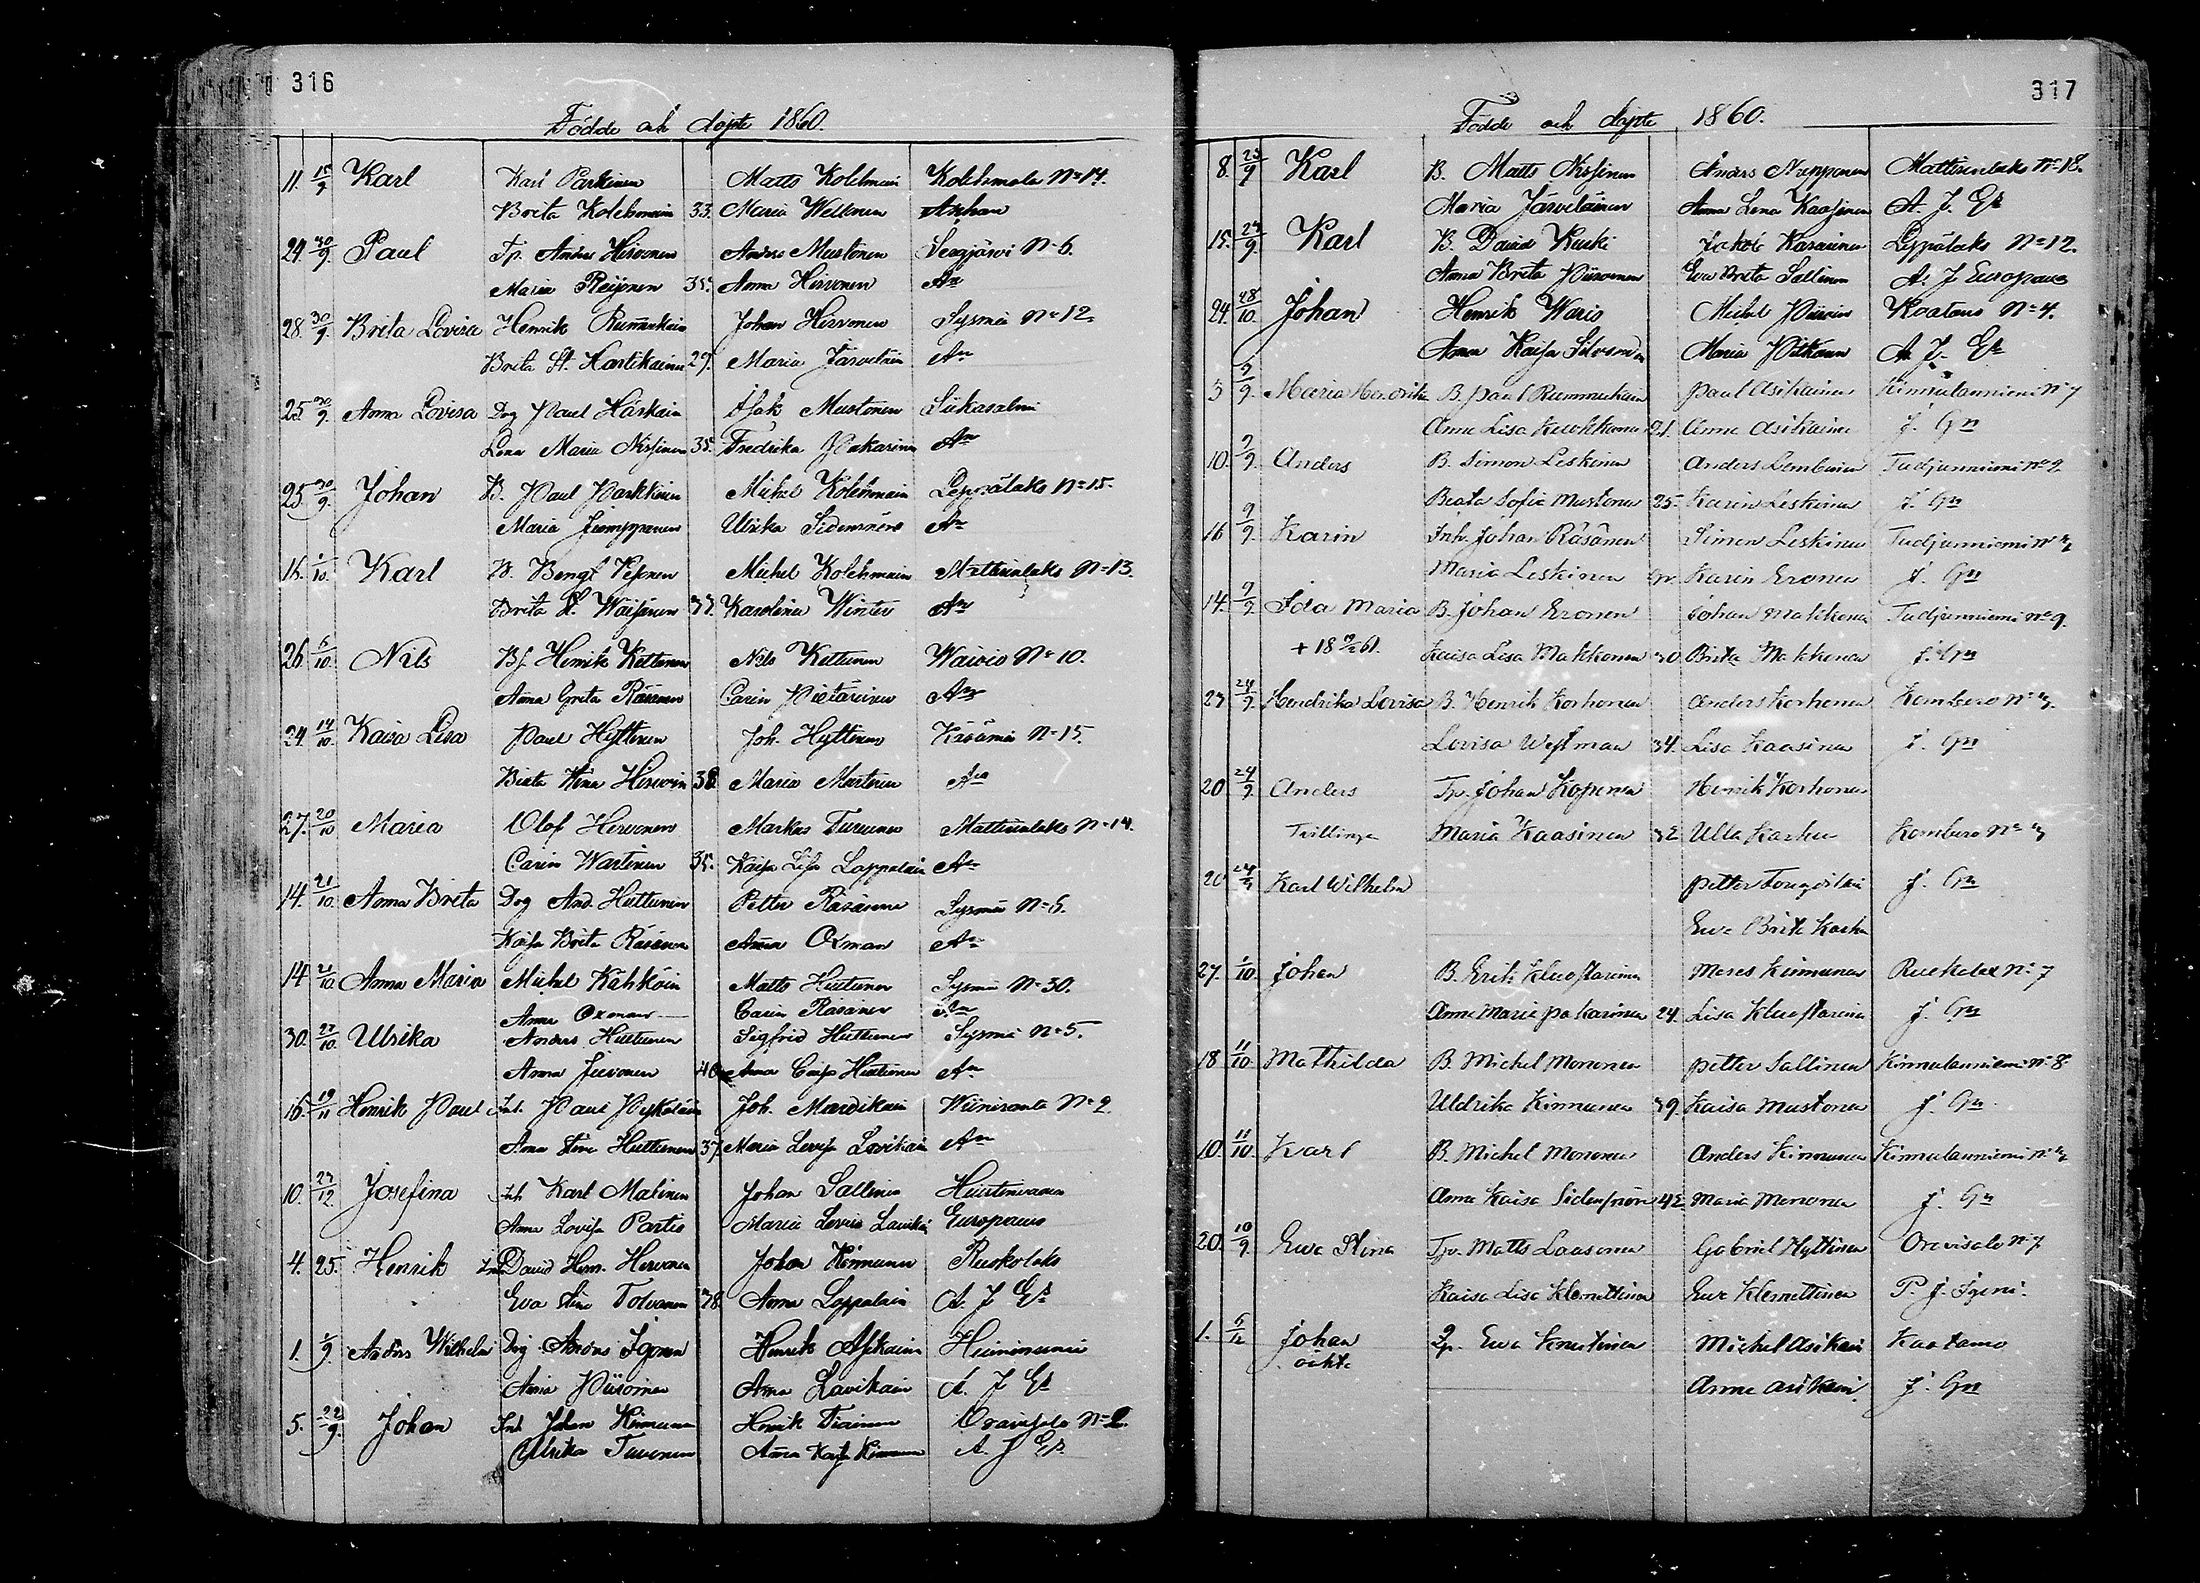 316
Födde och döpte 1860.
11. 15/9 Karl Karl Parkinen Matts Kolehmain Kolehmala No 14.
Brita Kolehmain 33. Maria Wellonen Ashan
24. 30/9 Paul Tp. Anders Hirvonen Anders Mustonen No 6.
Maria Reijonen 35. Anna Hirvonen An
28. 30/9 Brita Lovisa Henrik Rummukain Johan Hirvonen Sysmä No 12
Brita St. 29. Maria Järveläin An
25 30/9 Anna Lovisa Drg Paul Härkäin Isak Mustonen Siikasalmi
Lena Maria Nissinen 35. Fredrika Pakarinen An
25 30/9. Johan B. Paul Parkkinen Michel Kolehmain Leppälaks No 15.
Maria Jumppanen Ulrika Sidensnöre An
16. 1/10. Karl B. Bengt Pesonen Michel Kolehmain Mattisenlaks No 13.
Brita St. Wäisänen 37. Karolina Winter An
26. 6/10. Nils Bf. Henrik Kettunen Nils Kettunen Waivio No 10.
Anna Greta Räsänen Carin Pietarinen An
24. 14/10. Kaisa Lisa Paul Hyttinen Joh. Hyttinen No 15.
Beata Stina Hirvoin 38 Maria Martinen An
27. 20/10 Maria Olof Hirvonen Markus Turunen Mattisenlaks No 14.
Carin Wartinen 35. Kaisa Lisa Lappalain An
14. 21/10. Anna Brita Drg And. Huttunen Petter Räsänen Sysmä No 5.
Kaisa Brita Räsänen Anna Oxman An
14 21/10. Anna Maria Michel Kähköin Matts Huttunen Sysmä No 30.
Anna Oxman Carin Räsänen An
30. 27/10. Ulrika Anders Huttunen Sigfrid Huttunen Sysmä No 5.
Anna Juvonen 40 Anna Caisa Huttunen An
16. 19/11 Henrik Paul Inh. Paul Pykäläin Joh. Mardikain Wiiniranta No 2
Anna Stina Huttunen 37. Maria Lovisa Lavikain An
10. 27/12. Josefina Inh Karl Malinen Johan Sallinen Huistinvaara
Anna Lovisa Partio Maria Lovisa Lavikai Europaeus
4. 25. Henrik Inh David Henr. Hirvonen Johan Kinnunen Ruskolaks
Eva Stina Tolvanen 38. Anna Lappalain A. J. Es
1. 2/9. Anders Wilhelm Drg Anders Igonen Henrik Asikain
Anna Piiroinen Anna Lavikain A. J. Es
5. 22/9. Johan Inh Johan Kinnunen Henrik Tiainen Oravisalo No 2.
Ulrika Turunen Anna Kaisa Kinnunen A. J. Es
317
Födde och döpte 1860.
8. 23/9 Karl B. Matts Nissinen Anders Nupponen Mattisenlaks No 18.
Maria Järveläinen Anna Lena Kaasinen A. J. Es
15. 23/9. Karl B. David Kurki Jakob Karvinen Leppälaks No 12.
Anna Brita Piiroinen Eva Brita Sallinen A. J. Europaeus
24. 28/10. Johan Henrik Waris Michel Piiroin Kaatamo No 4.
Anna Kaisa Maria Pitkänen A. J. Es
3 2/9. Maria Hendrika B. Paul Rummukain Paul Asikainen Kinnulanniemi No 7
Anna Lisa Kuokkanen 21. Anna Asikainen J. Gn
10. 9/9. Anders B. Simon Leskinen Anders Lembinen Tudjunniemi No 9
Beata Sofia Mustonen 25. Karin Leskinen J. Gn
16 9/9. Karin Inh. Johan Räsänen Simon Leskinen Tudjunniemi No
Maria Leskinen Karin Eronen J. Gn
14. 9/9. Ida Maria B. Johan Eronen Johan Makkonen Tudjunniemi No 9.
+ 18 61. Kaisa Lisa Makkonen 30. Brita Makkonen J. Gn
23 24/9. Hendrika Lovisa B. Henrik Korhonen Anders Korhonen Komburo No 3.
Lovisa Westman 34. Lisa Kaasinen J. Gn
20 24/9. Anders Tp. Johan Koponen Henrik Korhonen
Tvillinge Maria Kaasinen 32 Ulla Karhu Komburo No 3
20 24/9 Karl Wilhelm Petter J. Gn
Eva Brita Karhu
27. 1/10. Johan B. Erik Kluostarinen Moses Kinnunen Ruskolax No 7
Anna Maria Pakarinen 24. Lisa Kluostarinen J. Gn
18 11/10. Mathilda B. Michel Mononen Petter Sallinen Kinnulanniemi No 8
Uldrika Kinnunen 39. Kaisa Mustonen J. Gn
10. 11/10. Karl B. Michel Mononen Anders Kinnunen Kinnulanniemi No
Anna Kaisa Sidensnöre 42 Maria Mononen J. Gn
20. 10/9. Eva Stina Tp. Matts Laasonen Gabriel Hyttinen Oravisalo No 7.
Kaisa Lisa Klemettinen Eva Klemettinen P. J.
1. 5/12 Johan Qp. Eva Knuutinen Michel Asikain Kaatamo
oäkta Anna Asikain J. Gn